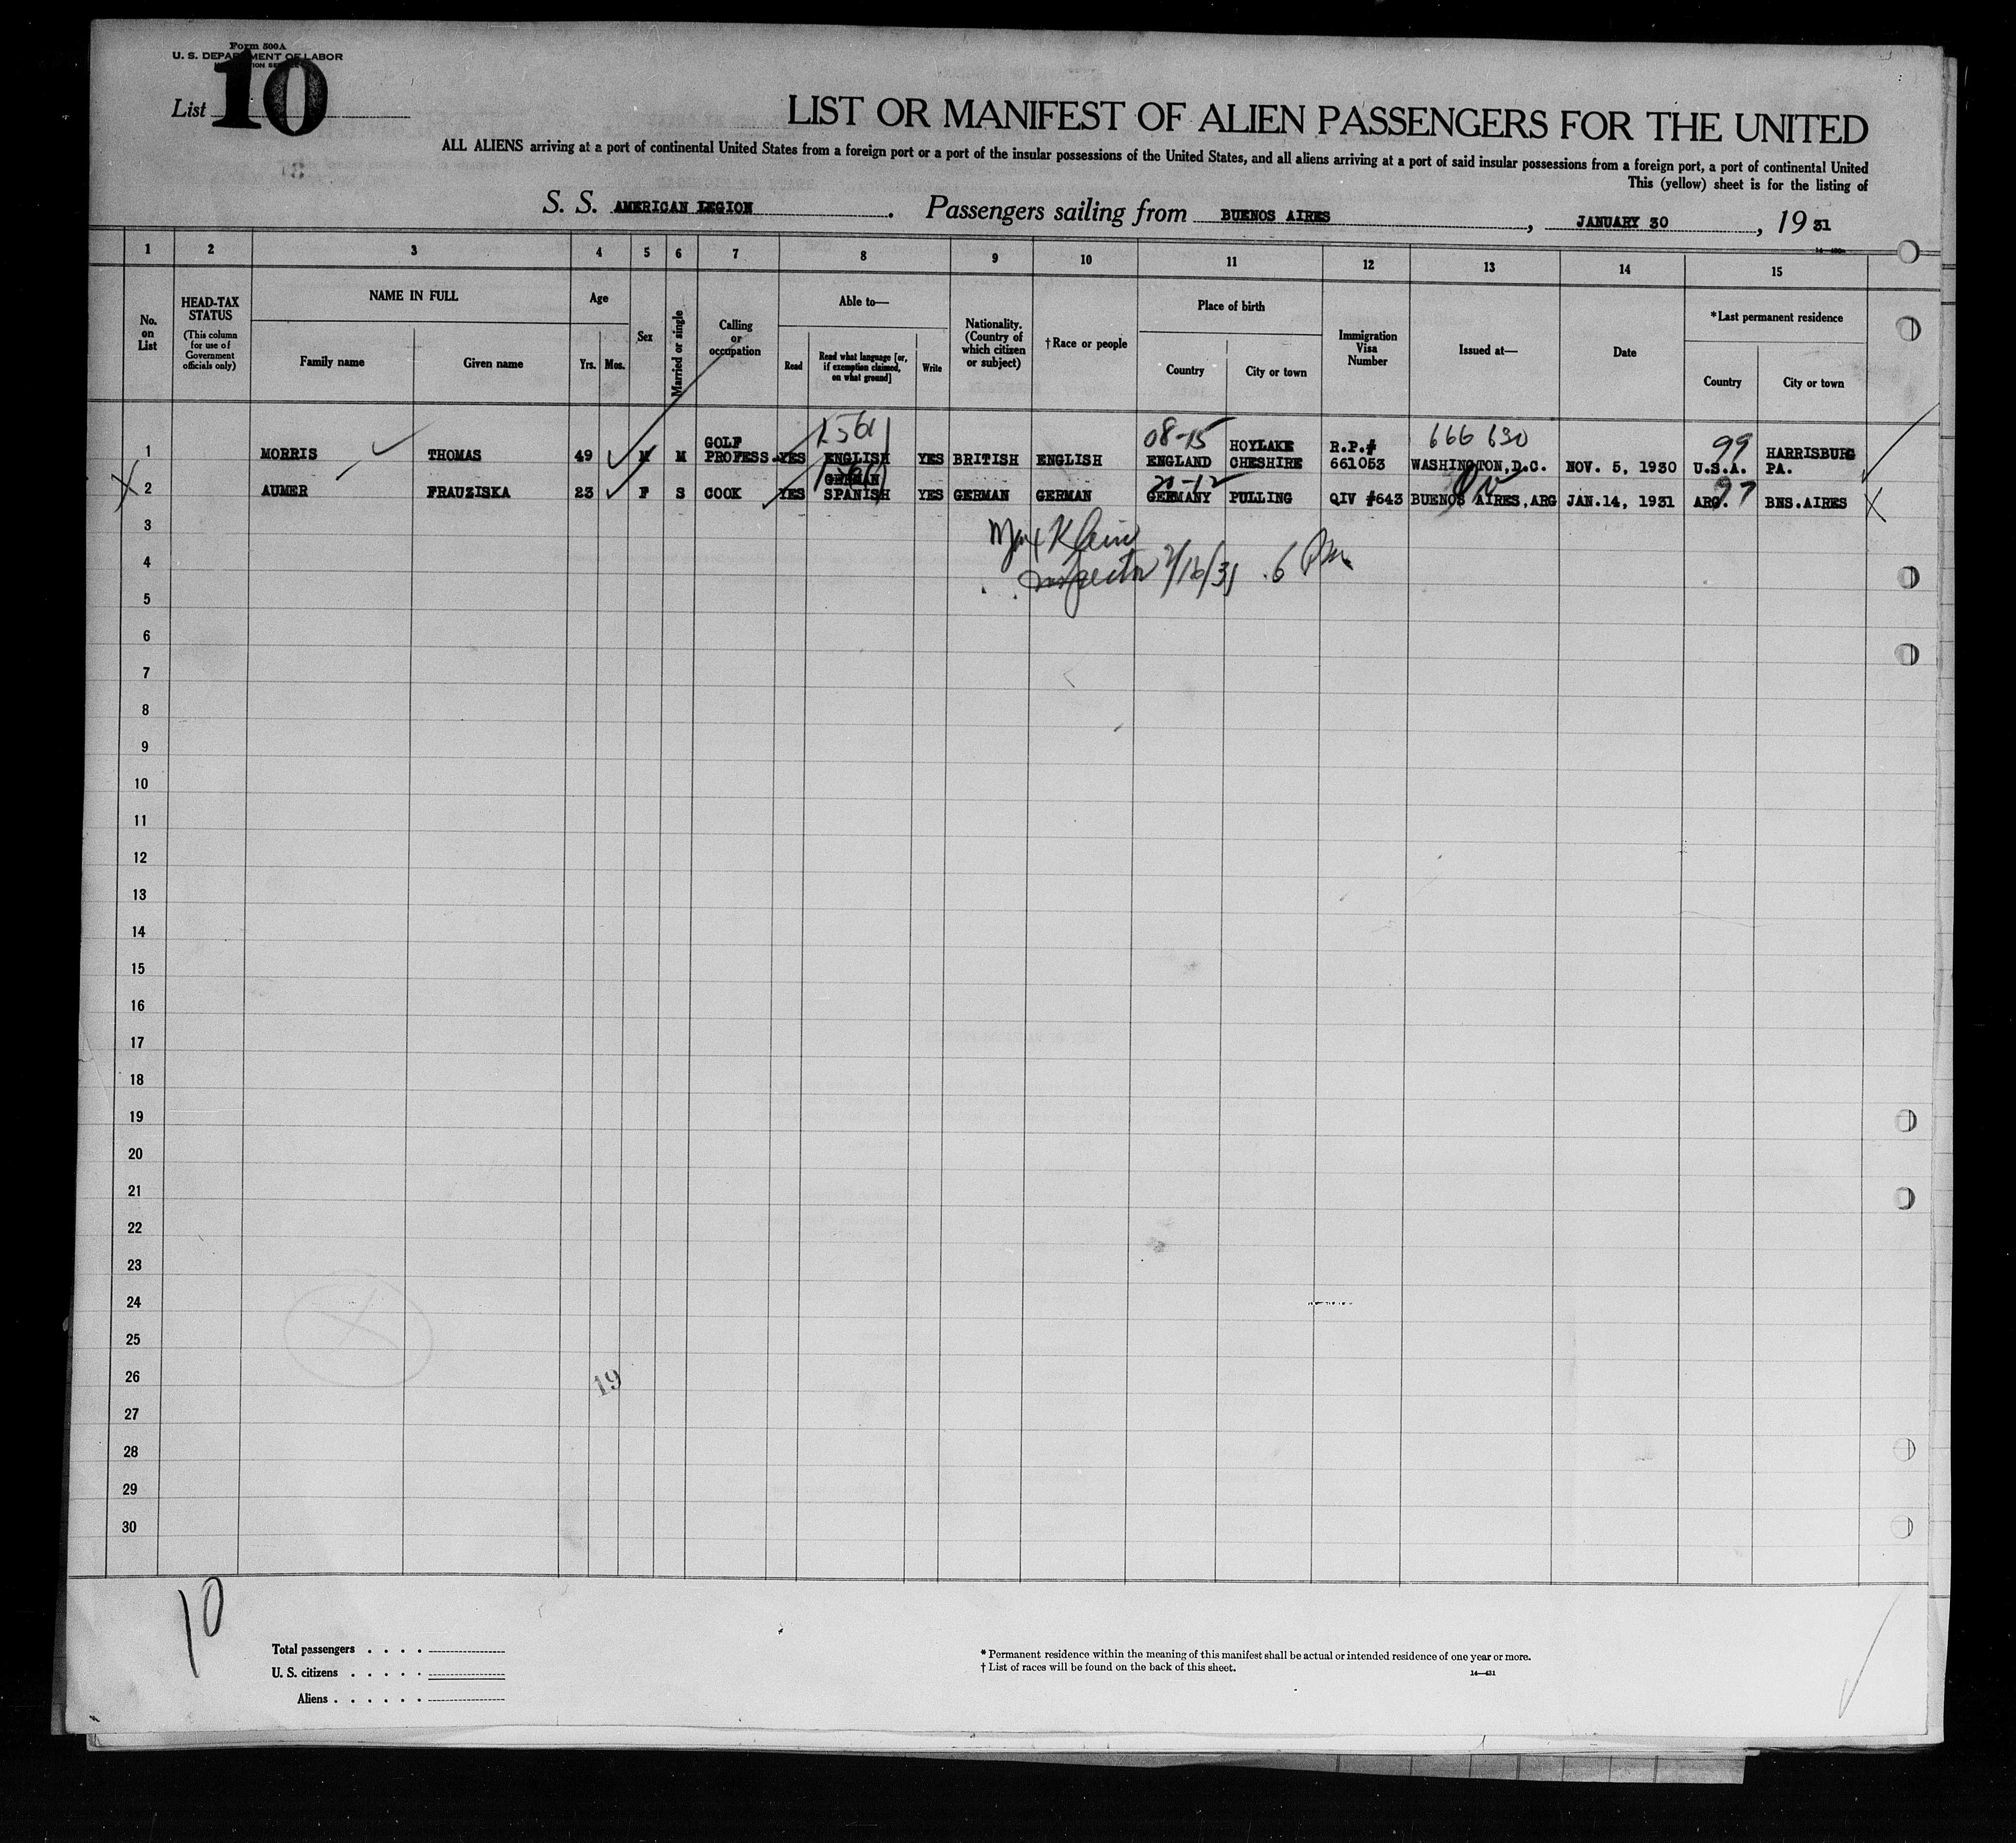 Form 500A
U. S. DEPARTMENT OF LABOR
List 10
LIST OR MANIFEST OF ALIEN PASSENGERS FOR THE UNITED
ALL ALIENS arriving at a port of continental United States from a foreign port or a port of the insular possessions of the United States, and all aliens arriving at a port of said insular possessions from a foreign port, a port of continental United
This (yellow) sheet is for the listing of
S. S. AMERICAN LEGION. Passengers sailing from BUENOS AIRES, JANUARY 30, 19 31
1 2 3 4 5 6 7 8 9 10 11 12 13 14 15
No. on List
HEAD-TAX STATUS (This column for use of Government officials only)
NAME IN FULL
Family name
Given name
Age
Yrs.
Mos.
Sex
Married or single
Calling or occupation
Able to—
Read
Read what language [or, if exemption claimed, on what ground]
Write
Nationality. (Country of which citizen or subject)
†Race or people
Place of birth
Country
City or town
Immigration Visa Number
Issued at—
Date
*Last permanent residence
Country
City or town
1561 08-15 666 630 99
1 MORRIS THOMAS 49 M M GOLF PROFESS. YES ENGLISH YES BRITISH ENGLISH ENGLAND HOYLAKE CHESHIRE R.P.# 661053 WASHINGTON,D.C. NOV. 5, 1930 U.S.A. HARRISBURG PA.
2 AUMER FRAUZISKA 23 F S COOK YES GERMAN SPANISH YES GERMAN GERMAN GERMANY PULLING QIV #643 BUENOS AIRES,ARG JAN.14, 1931 ARG. BNS.AIRES
3
Max Klein
4
Inspector 2/16/31 6 PM
5
6
7
8
9
10
11
12
13
14
15
16
17
18
19
20
21
22
23
24
25
26
19
27
28
29
30
10
Total passengers . . . .
U. S. citizens . . . . .
Aliens . . . . . .
* Permanent residence within the meaning of this manifest shall be actual or intended residence of one year or more.
† List of races will be found on the back of this sheet.
14—431